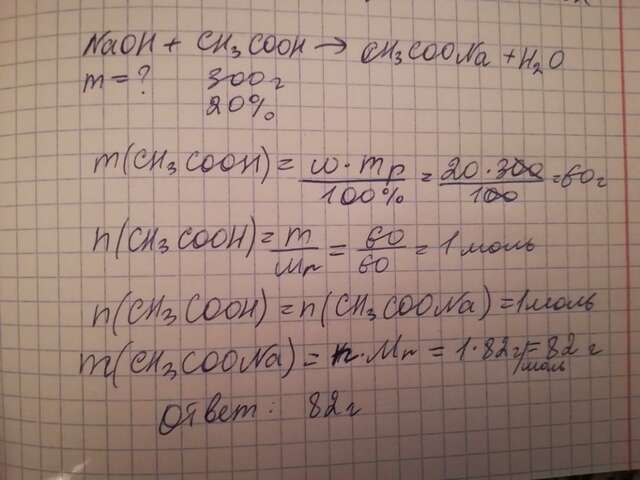 NaOH + CH₃COOH → CH₃COONa + H₂O
m = ? 300 г
20%
m(CH₃COOH) = ω · mр / 100% = 20 · 300 / 100 = 60 г
n(CH₃COOH) = m / Mr = 60 / 60 = 1 моль
n(CH₃COOH) = n(CH₃COONa) = 1 моль
m(CH₃COONa) = n · Mr = 1 · 82 г/моль = 82 г
Ответ: 82 г